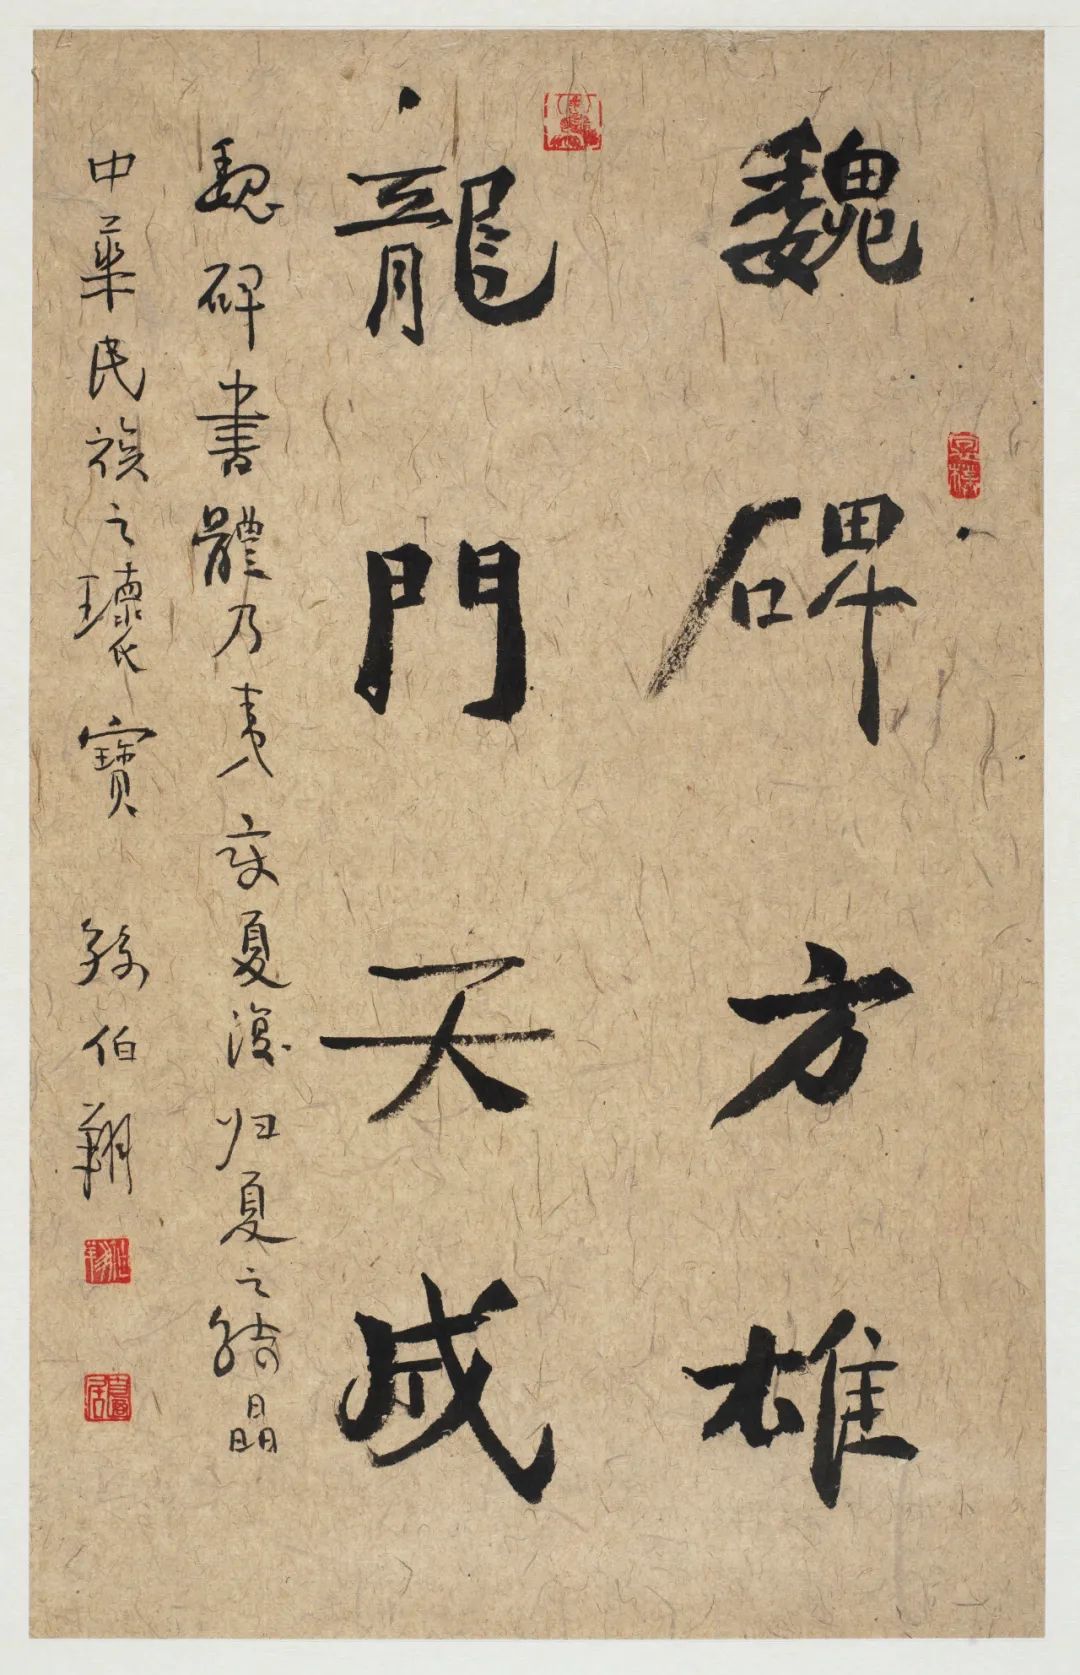 魏碑方雄
龍門天威
魏碑書體乃夷变夏復归夏之結晶
中華民族之瓌寶 孫伯翔